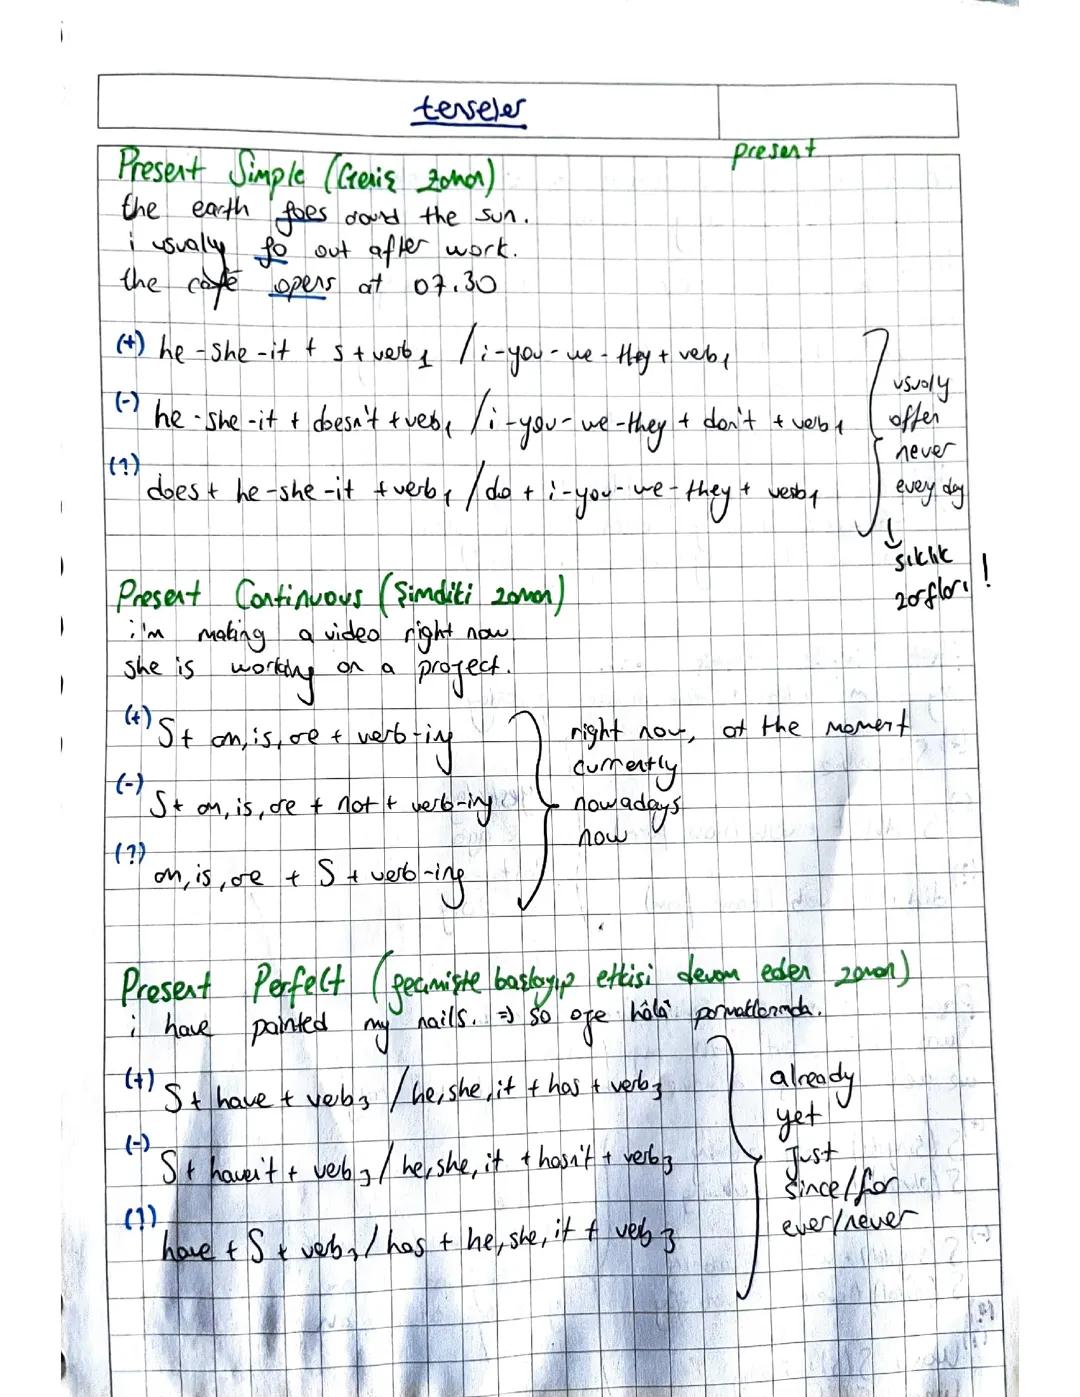 tenseler
present
Present Simple (Geniş zaman)
the earth goes around the sun.
i usualy go out after work.
the cafe opens at 07.30
(+) he-she-it + s + verb1 / i-you-we-they + verb1
(-) he-she-it + doesn't + verb1 / i-you-we-they + don't + verb1
(?) does + he-she-it + verb1 / do + i-you-we-they + verb1
usualy
offen
never
every day
↓
sıklık
zarfları !
Present Continuous (Şimdiki zaman)
i'm making a video right now
she is working on a project.
(+) S + am, is, are + verb-ing
(-) S + am, is, are + not + verb-ing
(?) am, is, are + S + verb-ing
right now, at the moment
currently
nowadays
now
Present Perfect (geçmişte başlayıp etkisi devam eden zaman)
i have painted my nails. => so oje hâlâ parmaklarımda.
(+) S + have + verb3 / he, she, it + has + verb3
(-) S + haven't + verb3 / he, she, it + hasn't + verb3
(?) have + S + verb3 / has + he, she, it + verb3
already
yet
Just
since/for
ever/never